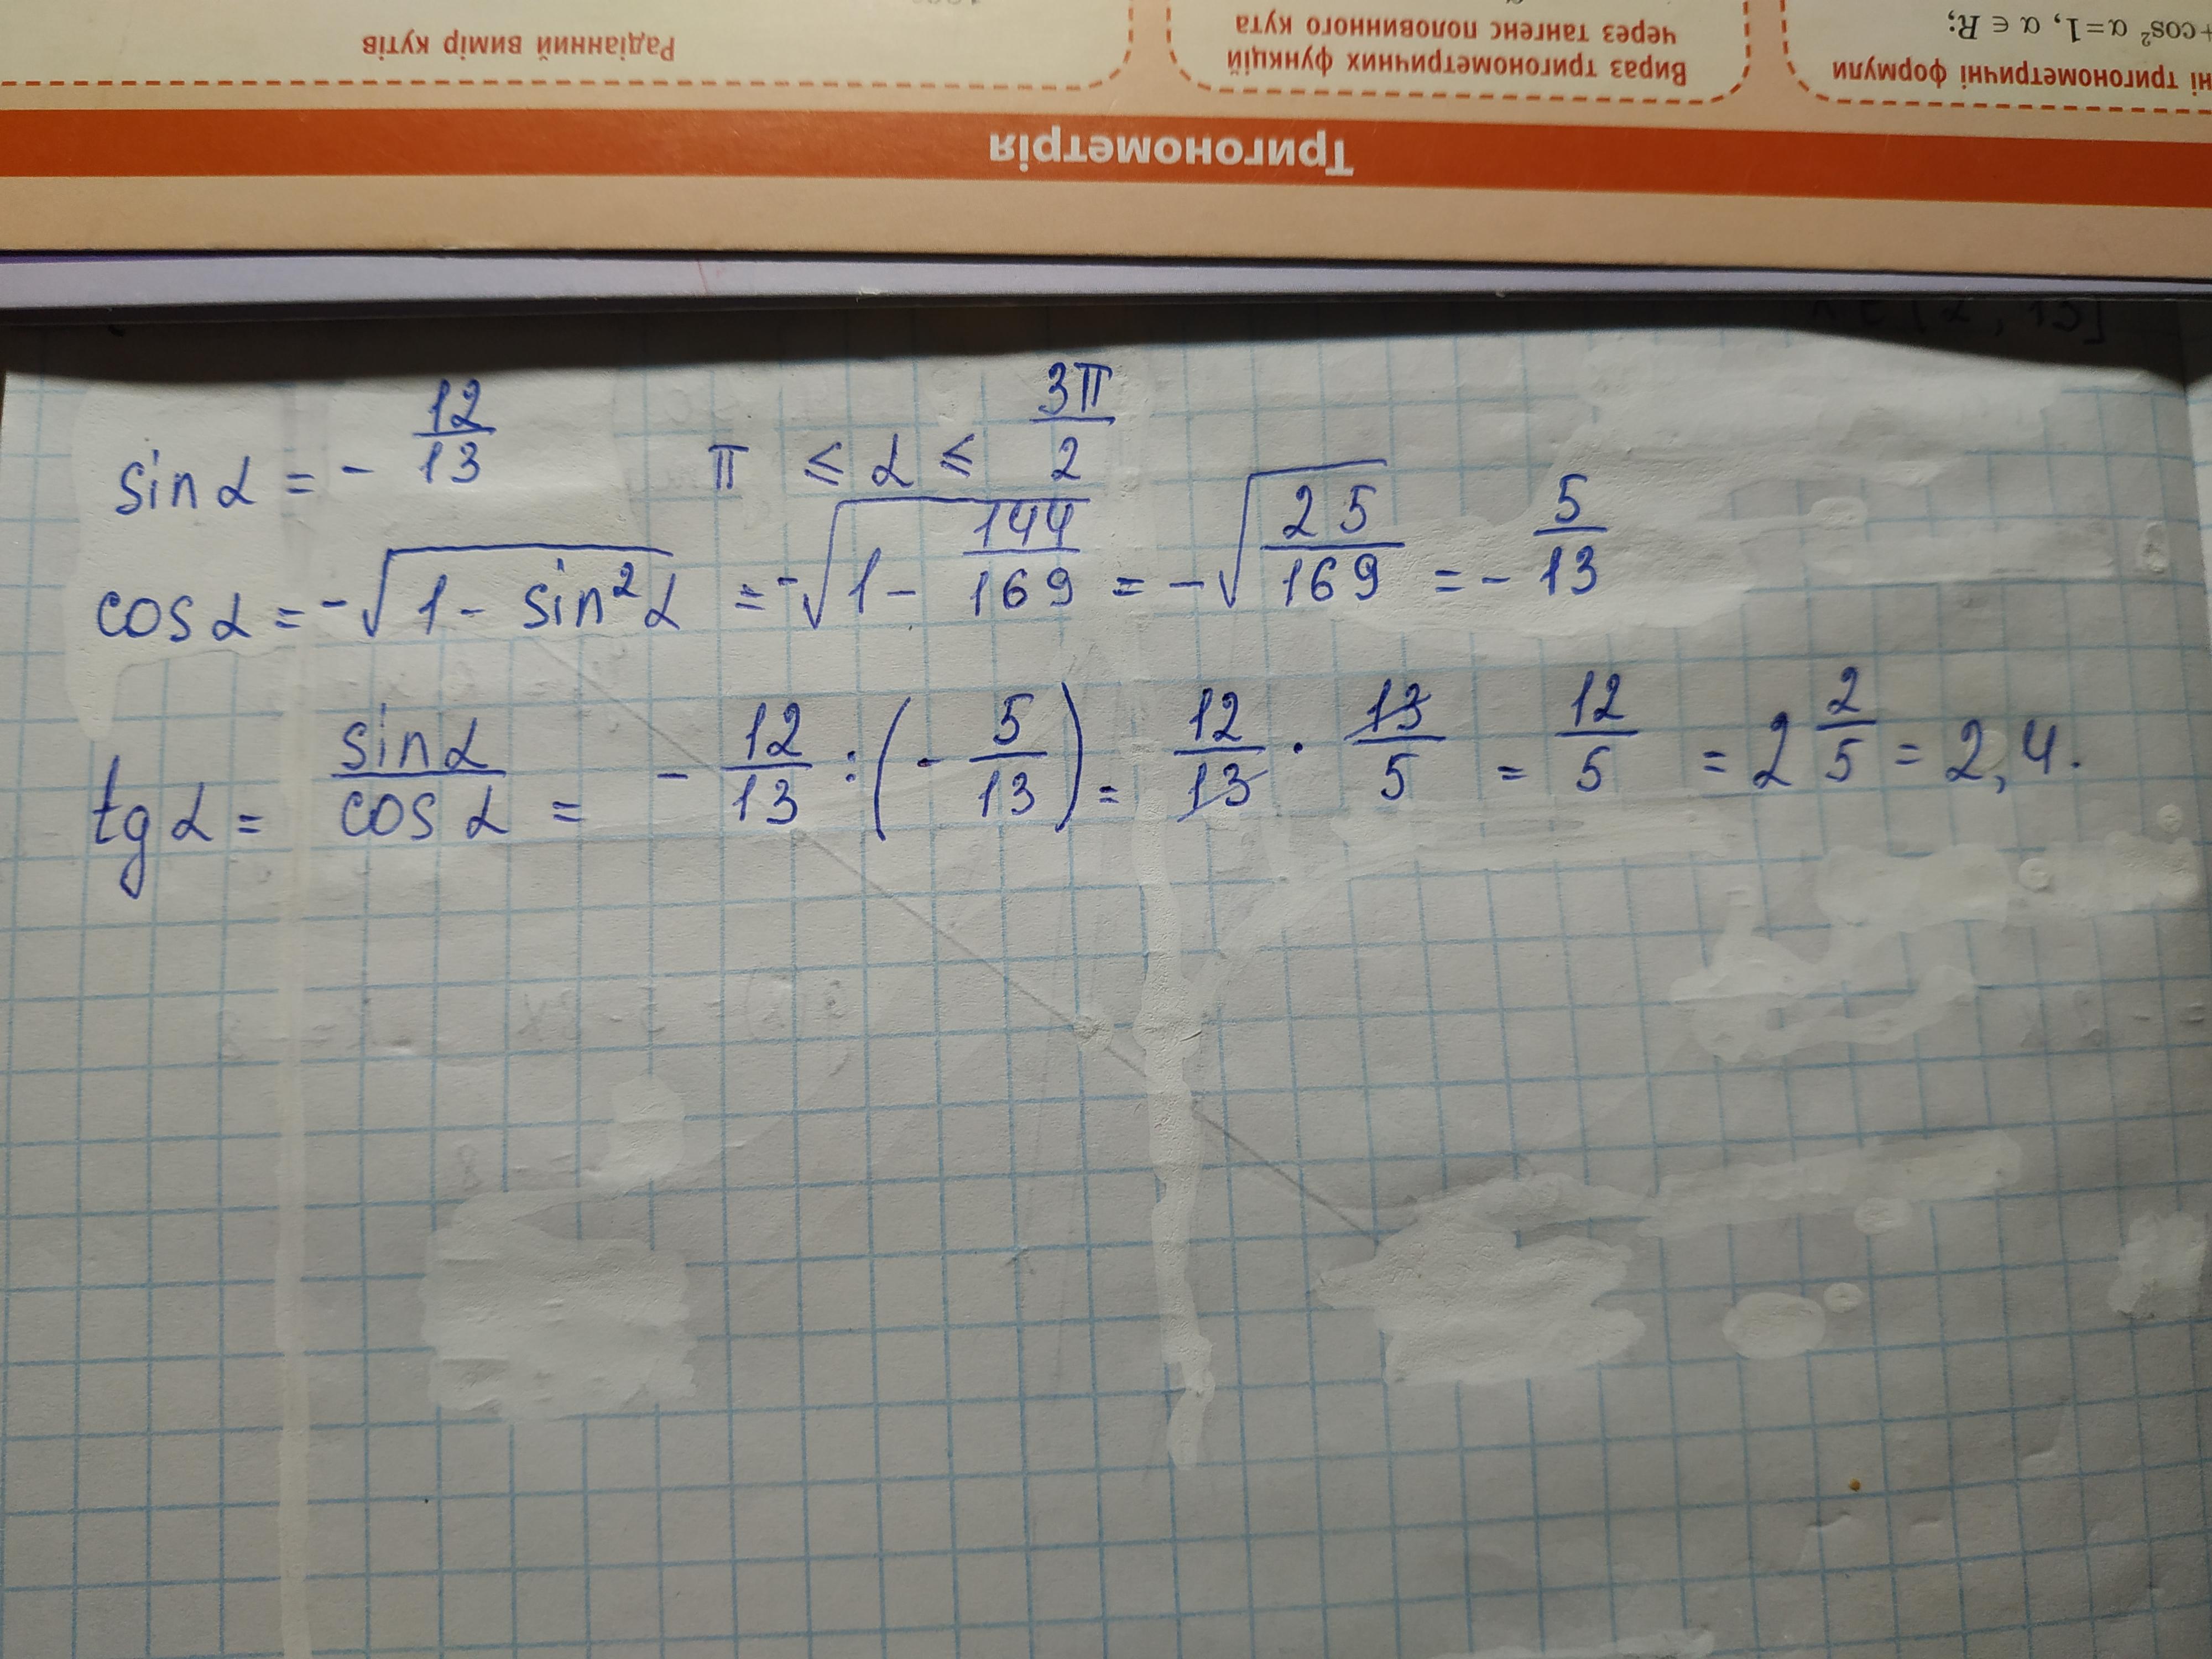 Радіанний вимір кутів
Вираз тригонометричних функцій
через тангенс половинного кута
ні тригонометричні формули
+cos² α=1, α ∈ R;
Тригонометрія
sin α = - 12/13   π ≤ α ≤ 3π/2
cos α = -√(1 - sin²α) = -√(1 - 144/169) = -√(25/169) = - 5/13
tg α = sin α/cos α = - 12/13 : (- 5/13) = 12/13 · 13/5 = 12/5 = 2 2/5 = 2,4.